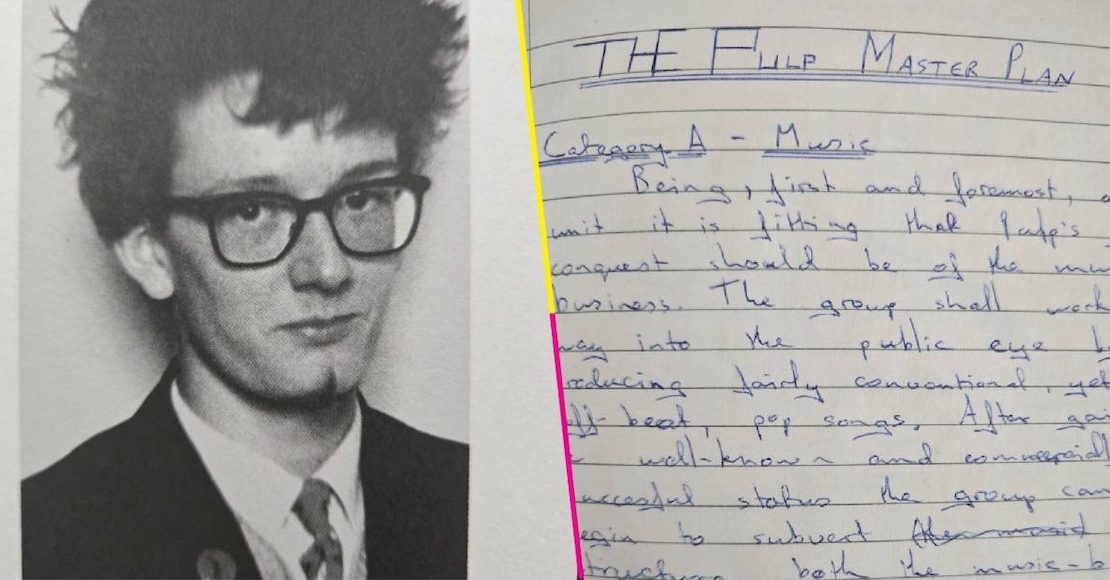 THE PULP MASTER PLAN
Category A - Music
Being, first and foremost, a
unit it is fitting that Pulp's
conquest should be of the mus
business. The group shall work
way into the public eye b
roducing fairly conventional, yet
off-beat, pop songs. After gai
well-known and commercial
uccessful status the group can
egin to subvert
structure both the music-b